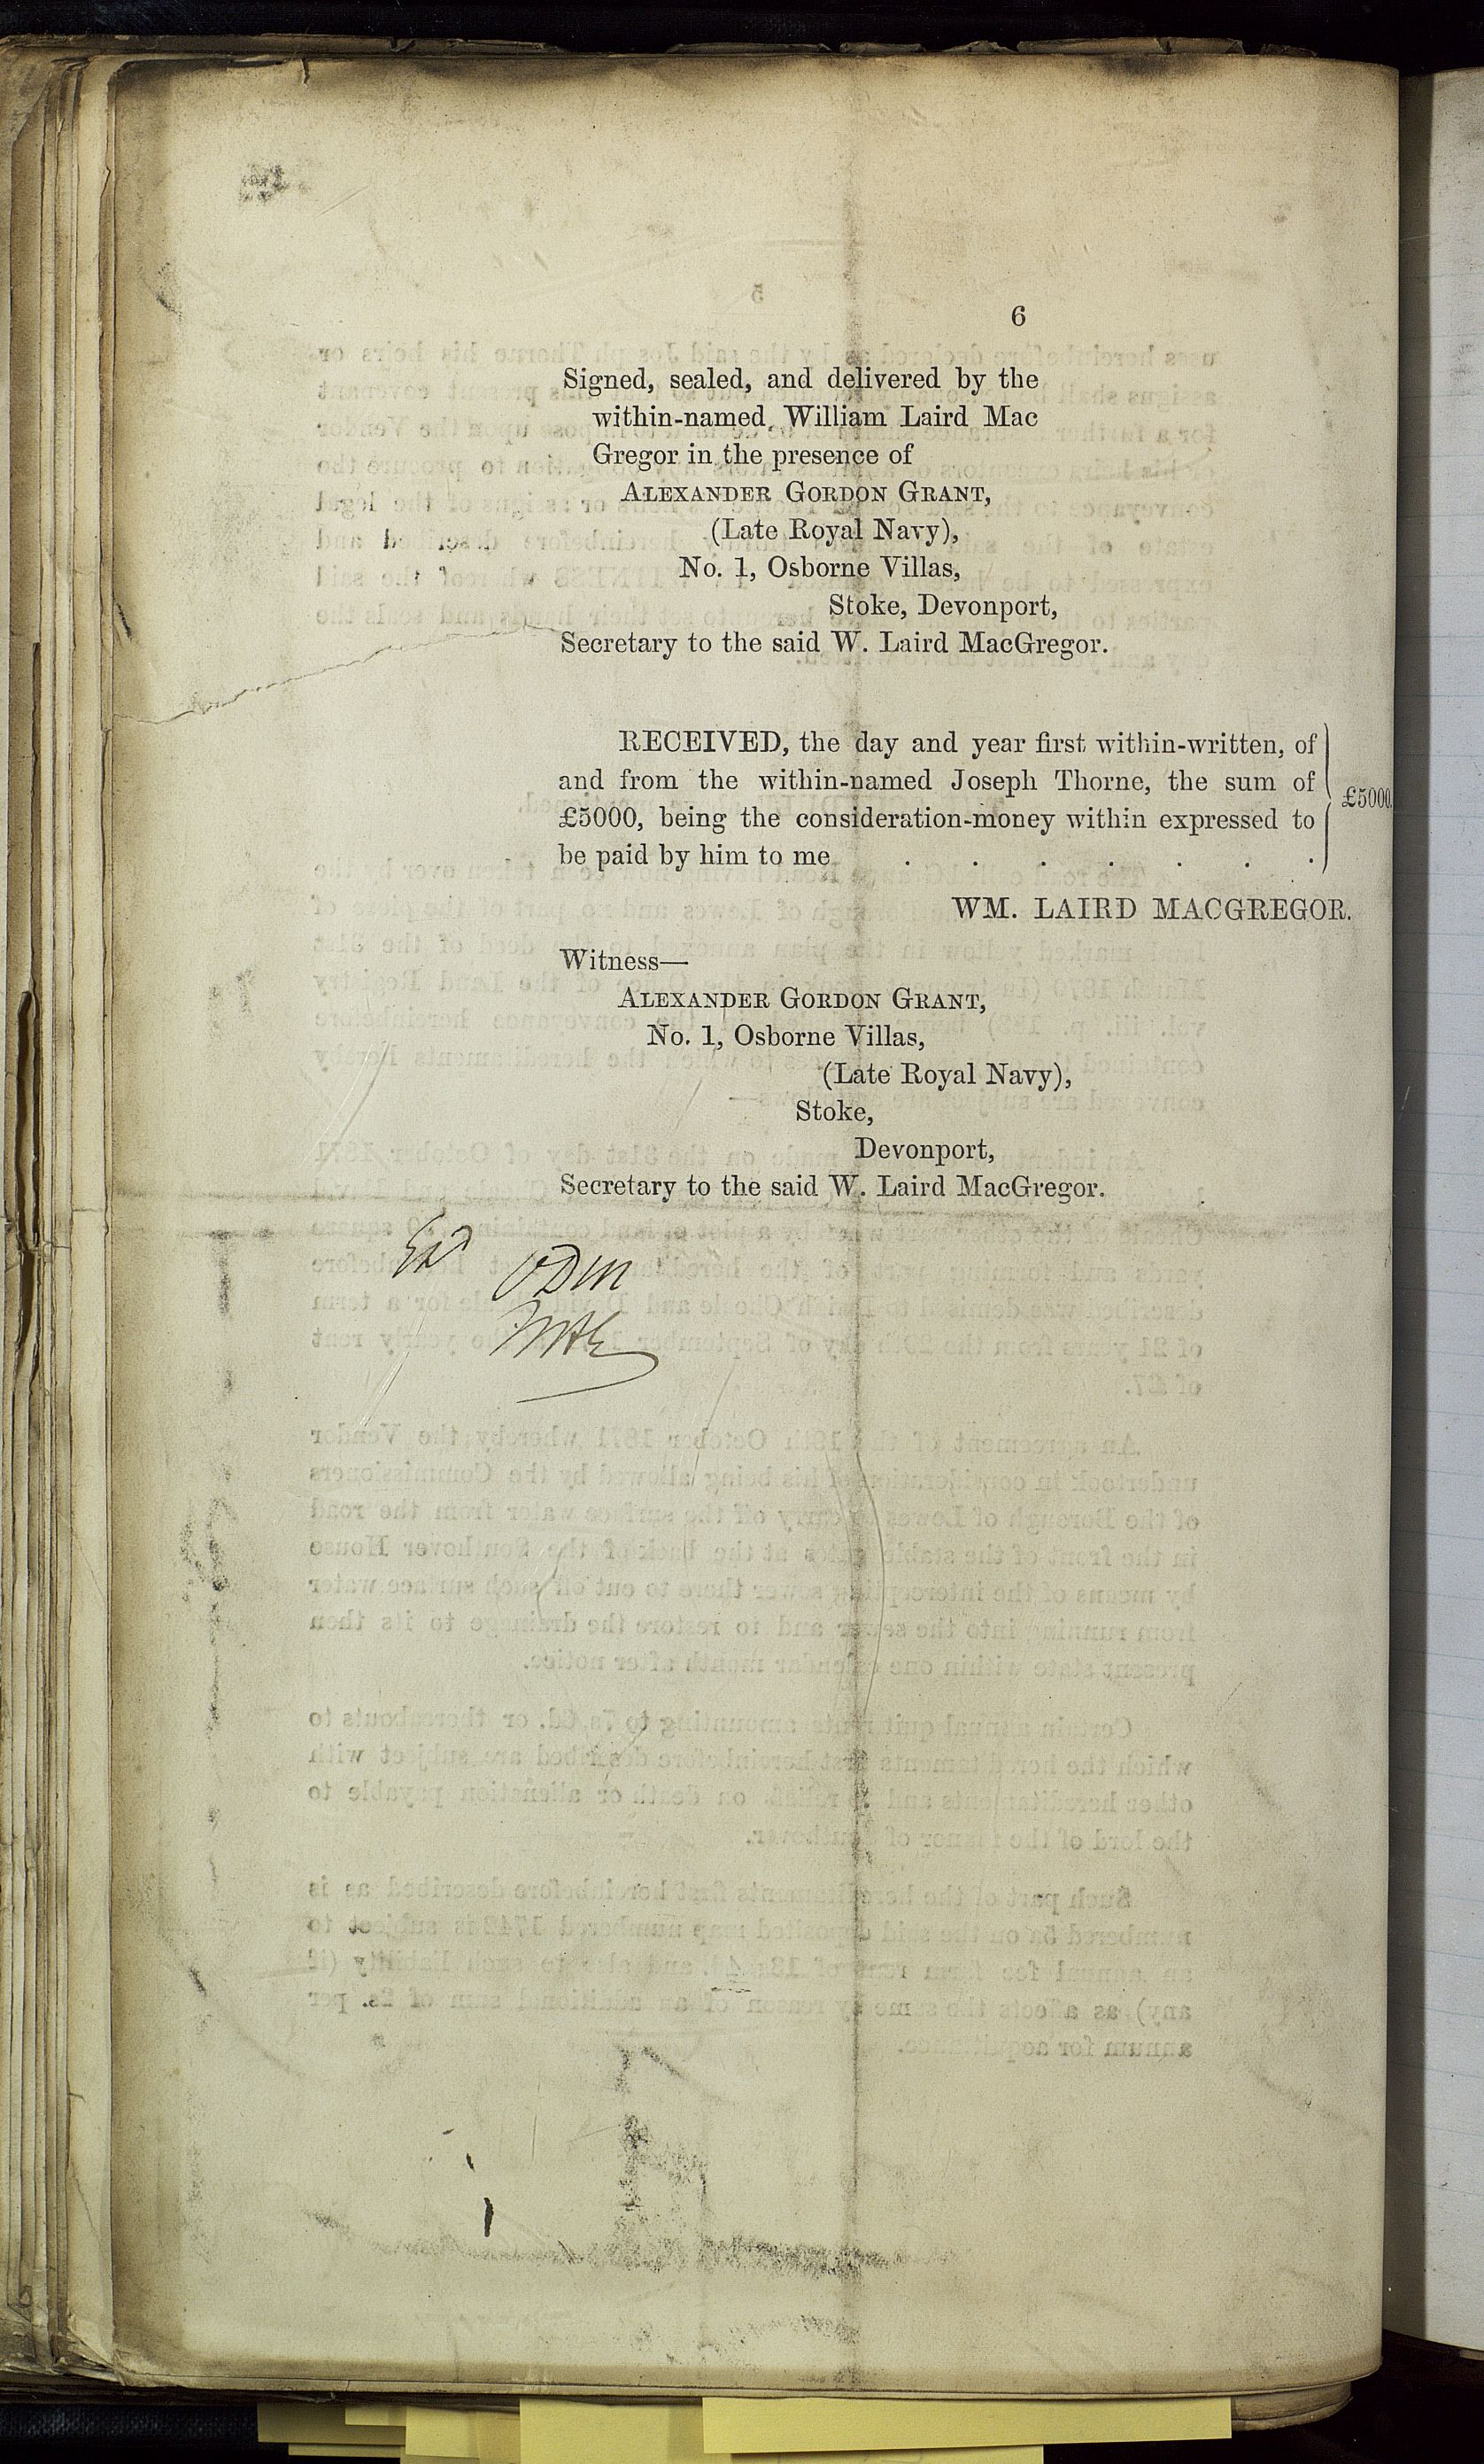 6
Signed, sealed, and delivered by the
within-named William Laird Mac
Gregor in the presence of
ALEXANDER GORDON GRANT,
(Late Royal Navy),
No. 1, Osborne Villas,
Stoke, Devonport,
Secretary to the said W. Laird MacGregor.
RECEIVED, the day and year first within-written, of
and from the within-named Joseph Thorne, the sum of
£5000, being the consideration-money within expressed to
be paid by him to me . . . . . . .
£5000.
WM. LAIRD MACGREGOR.
Witness—
ALEXANDER GORDON GRANT,
No. 1, Osborne Villas,
(Late Royal Navy),
Stoke,
Devonport,
Secretary to the said W. Laird MacGregor.